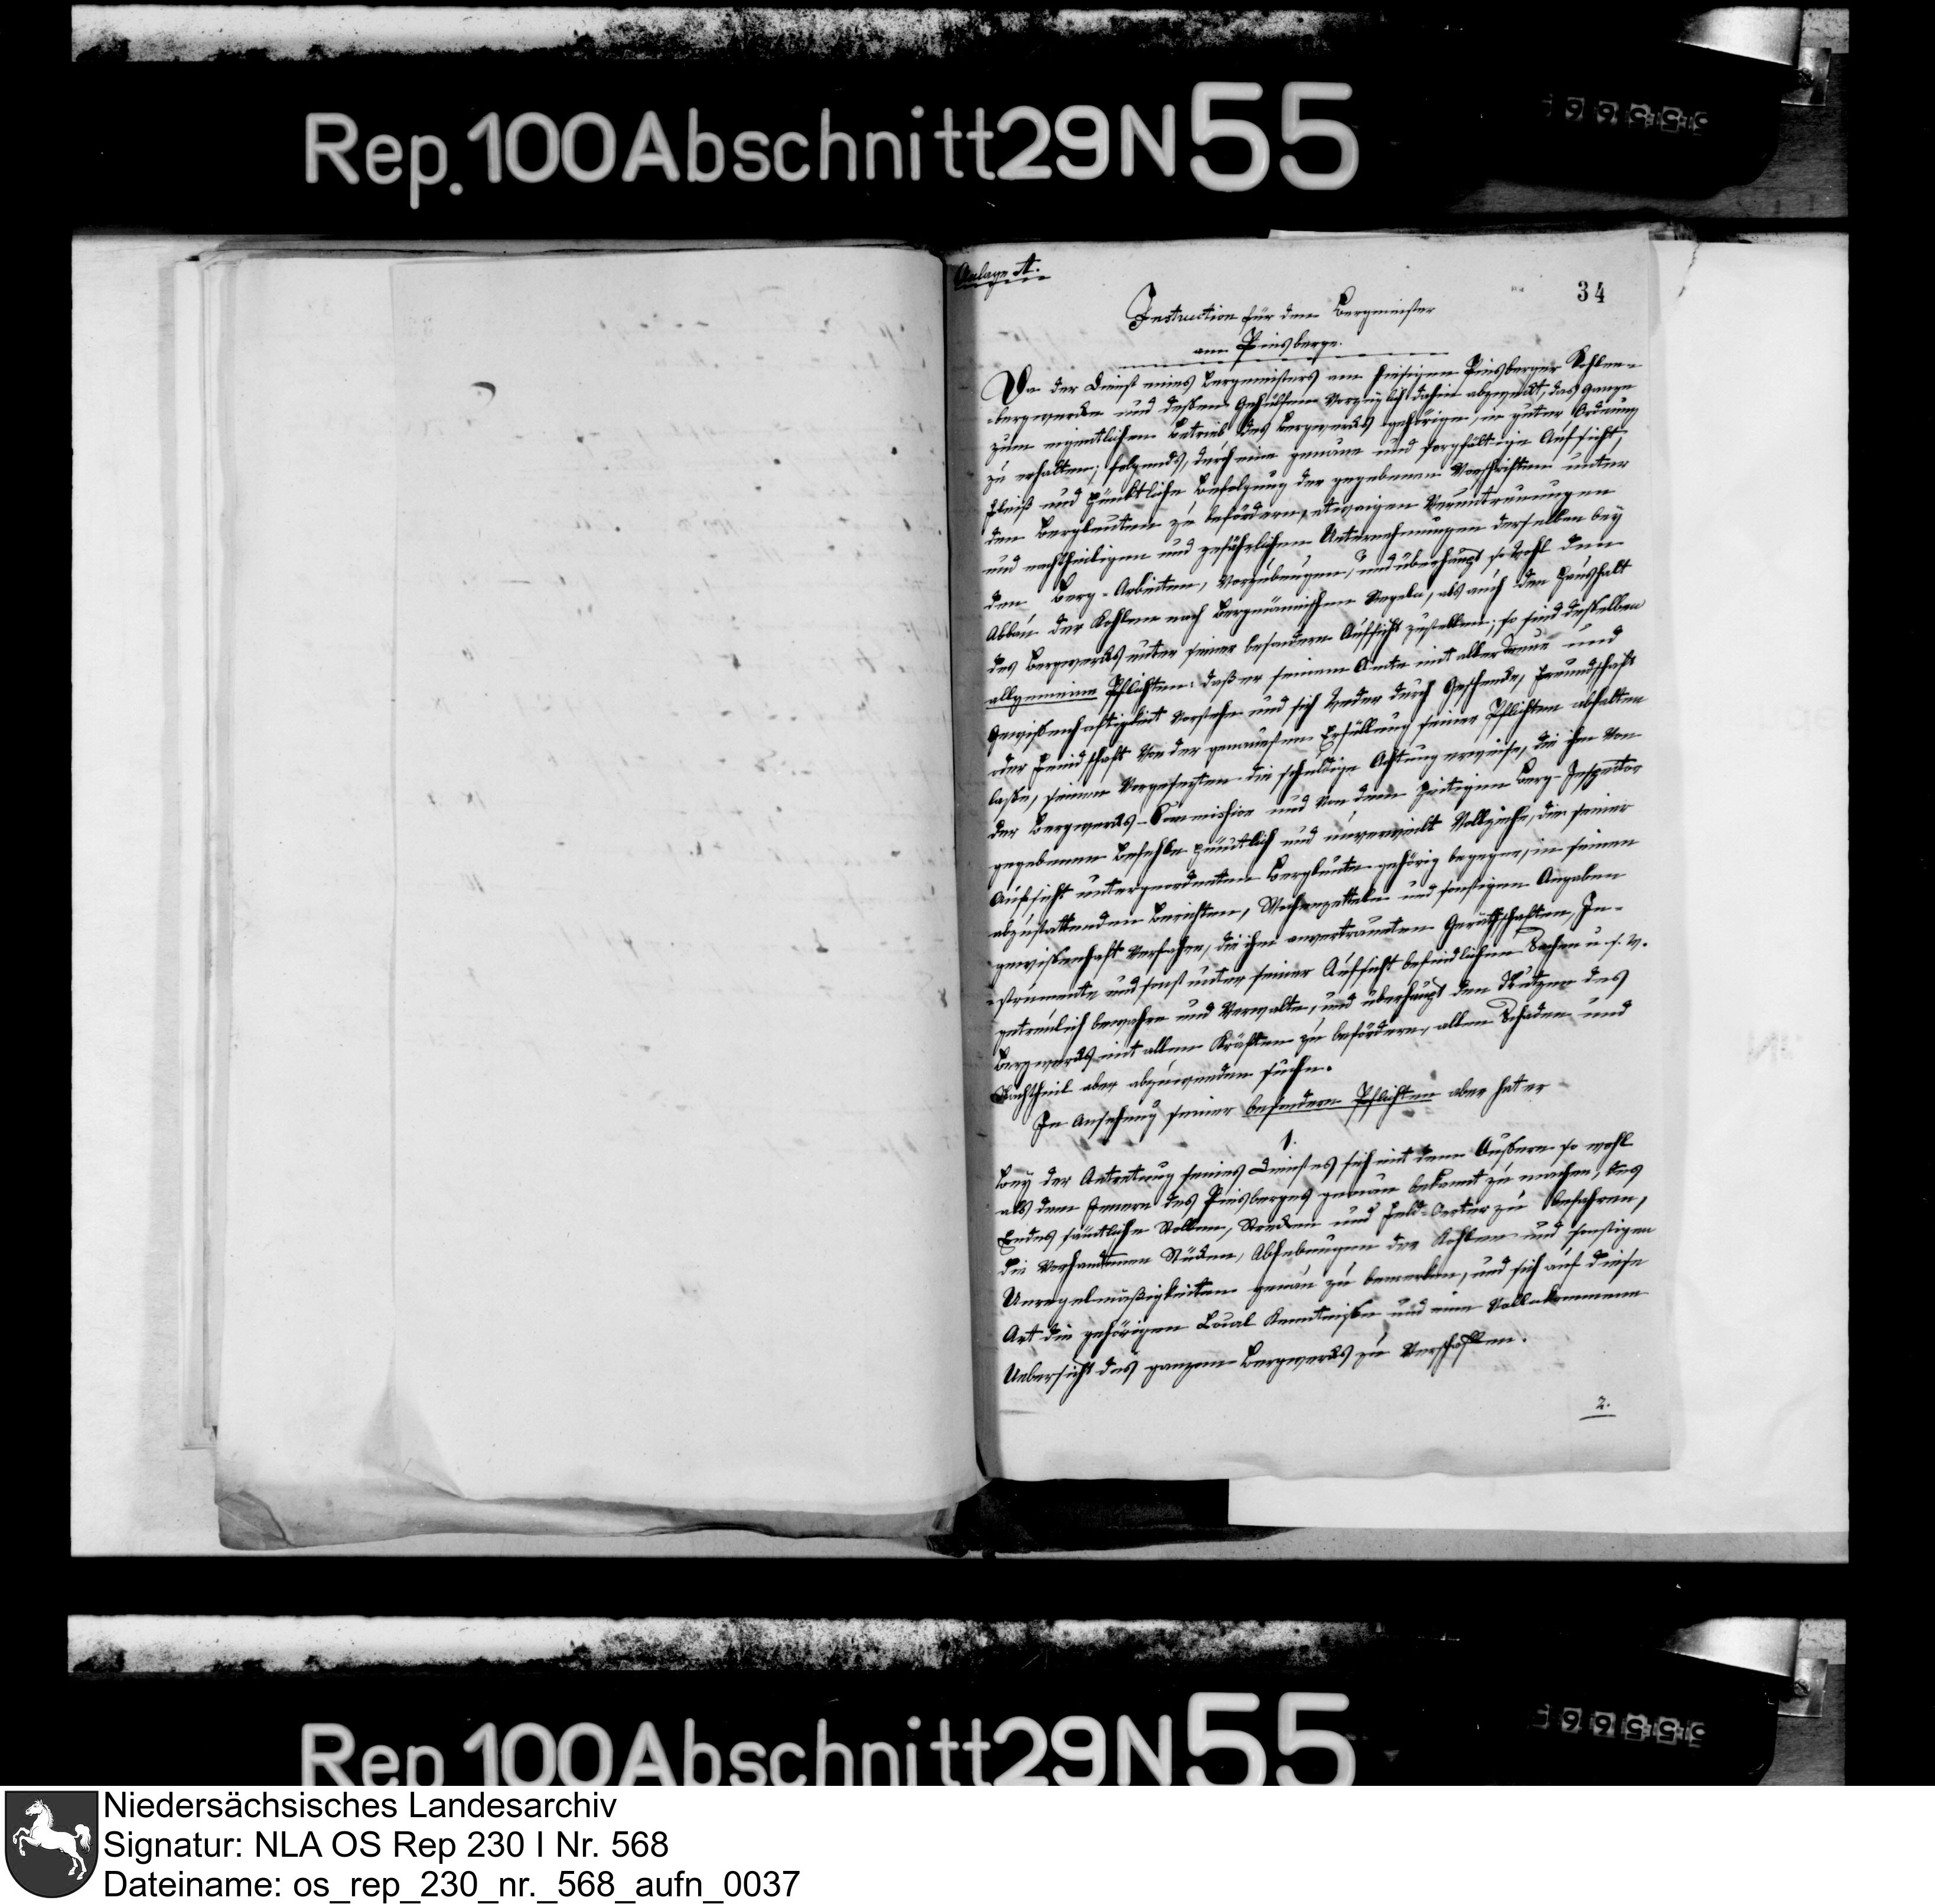 Rep. 100 Abschnitt 29 N 55
Anlage A.
34
Instruction für den Bergmeister
am Piesberge.
Da der Dienst eines Bergmeisters am hiesigen Piesberger Kohlen-
-bergwercke und deßen Gehülfen vorzüglich dahin abzweckt, das Ganze
zum eigentlichen Betrieb des Bergwercks gehörige, in guter Ordnung
zu erhalten; folgends, durch eine genaue und sorgfältige Aufsicht,
Fleiß und pünktliche Befolgung der gegebenen Vorschriften unter
den Bergleuten zu befördern, etwaigen Veruntreuungen
und nachtheiligen und gefährlichen Unternehmungen derselben bey
den Berg-Arbeiten, vorzubeugen, und überhaupt so wohl den
Abbau der Kohlen nach Bergmännischen Regeln, als auch den Haushalt
des Bergwercks unter seiner besondern Aufsicht zustellen; so sind desselben
allgemeine Pflichten: daß er seinem Amte mit aller Treue und
Gewißenhaftigkeit vorstehe und sich weder durch Geschencke, Freundschaft
oder Feindschaft von der genauesten Erfüllung seiner Pflichten abhalten
laße, seinen Vorgesezten die schuldige Achtung erweise, die ihm von
der Bergwercks-Commission und von dem zeitigen Berg-Inspector
gegebenen Befehle pünctlich und unverweilt vollziehe, den seiner
Aufsicht untergeordneten Bergleuten gehörig begegne, in seinen
abzustattenden Berichten, Wochenzetteln und sonstigen Angaben
gewißenhaft verfahre, die ihm anvertrauten Geräthschaften, In-
-strumente und sonst unter seiner Aufsicht befindlichen Sachen u. s. w.
getreulich bewahre und verwalte, und überhaupt den Nutzen des
Bergwercks mit allen Kräften zu befördern, allen Schaden und
Nachtheil aber abzuwenden suche.
In Ansehung seiner besondern Pflichten aber hat er
1.
Bey der Antretung seines Dienstes sich mit dem Äußern so wohl
als dem Innern des Piesberges genau bekannt zu machen, des
Endes sämtliche Stollen, Strecken und Feld-Oerter zu befahren,
die vorhandenen Rücken, Abhebungen der Kohlen und sonstigen
Unregelmäßigkeiten genau zu bemerken, und sich auf diese
Art die gehörigen Local Kenntniße und eine vollkommene
Uebersicht des ganzen Bergwercks zu verschaffen.
2.
Rep 100 Abschnitt 29 N 55
Niedersächsisches Landesarchiv
Signatur: NLA OS Rep 230 I Nr. 568
Dateiname: os_rep_230_nr._568_aufn_0037